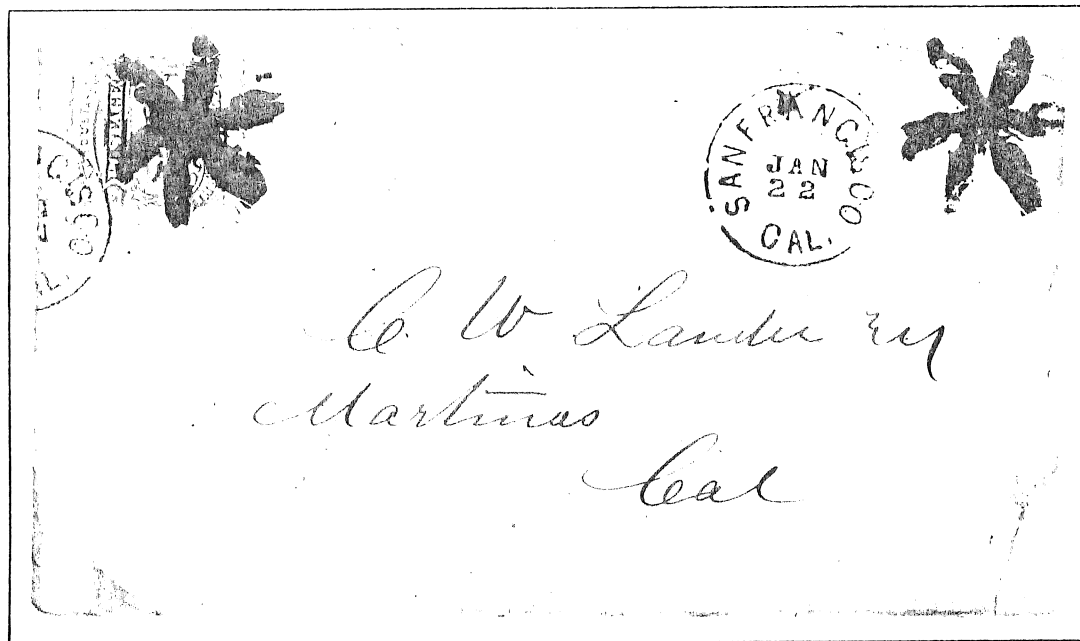 SAN FRANCISCO
JAN
22
CAL.
SCO
C. W Lander Esq
Martinas
Cal